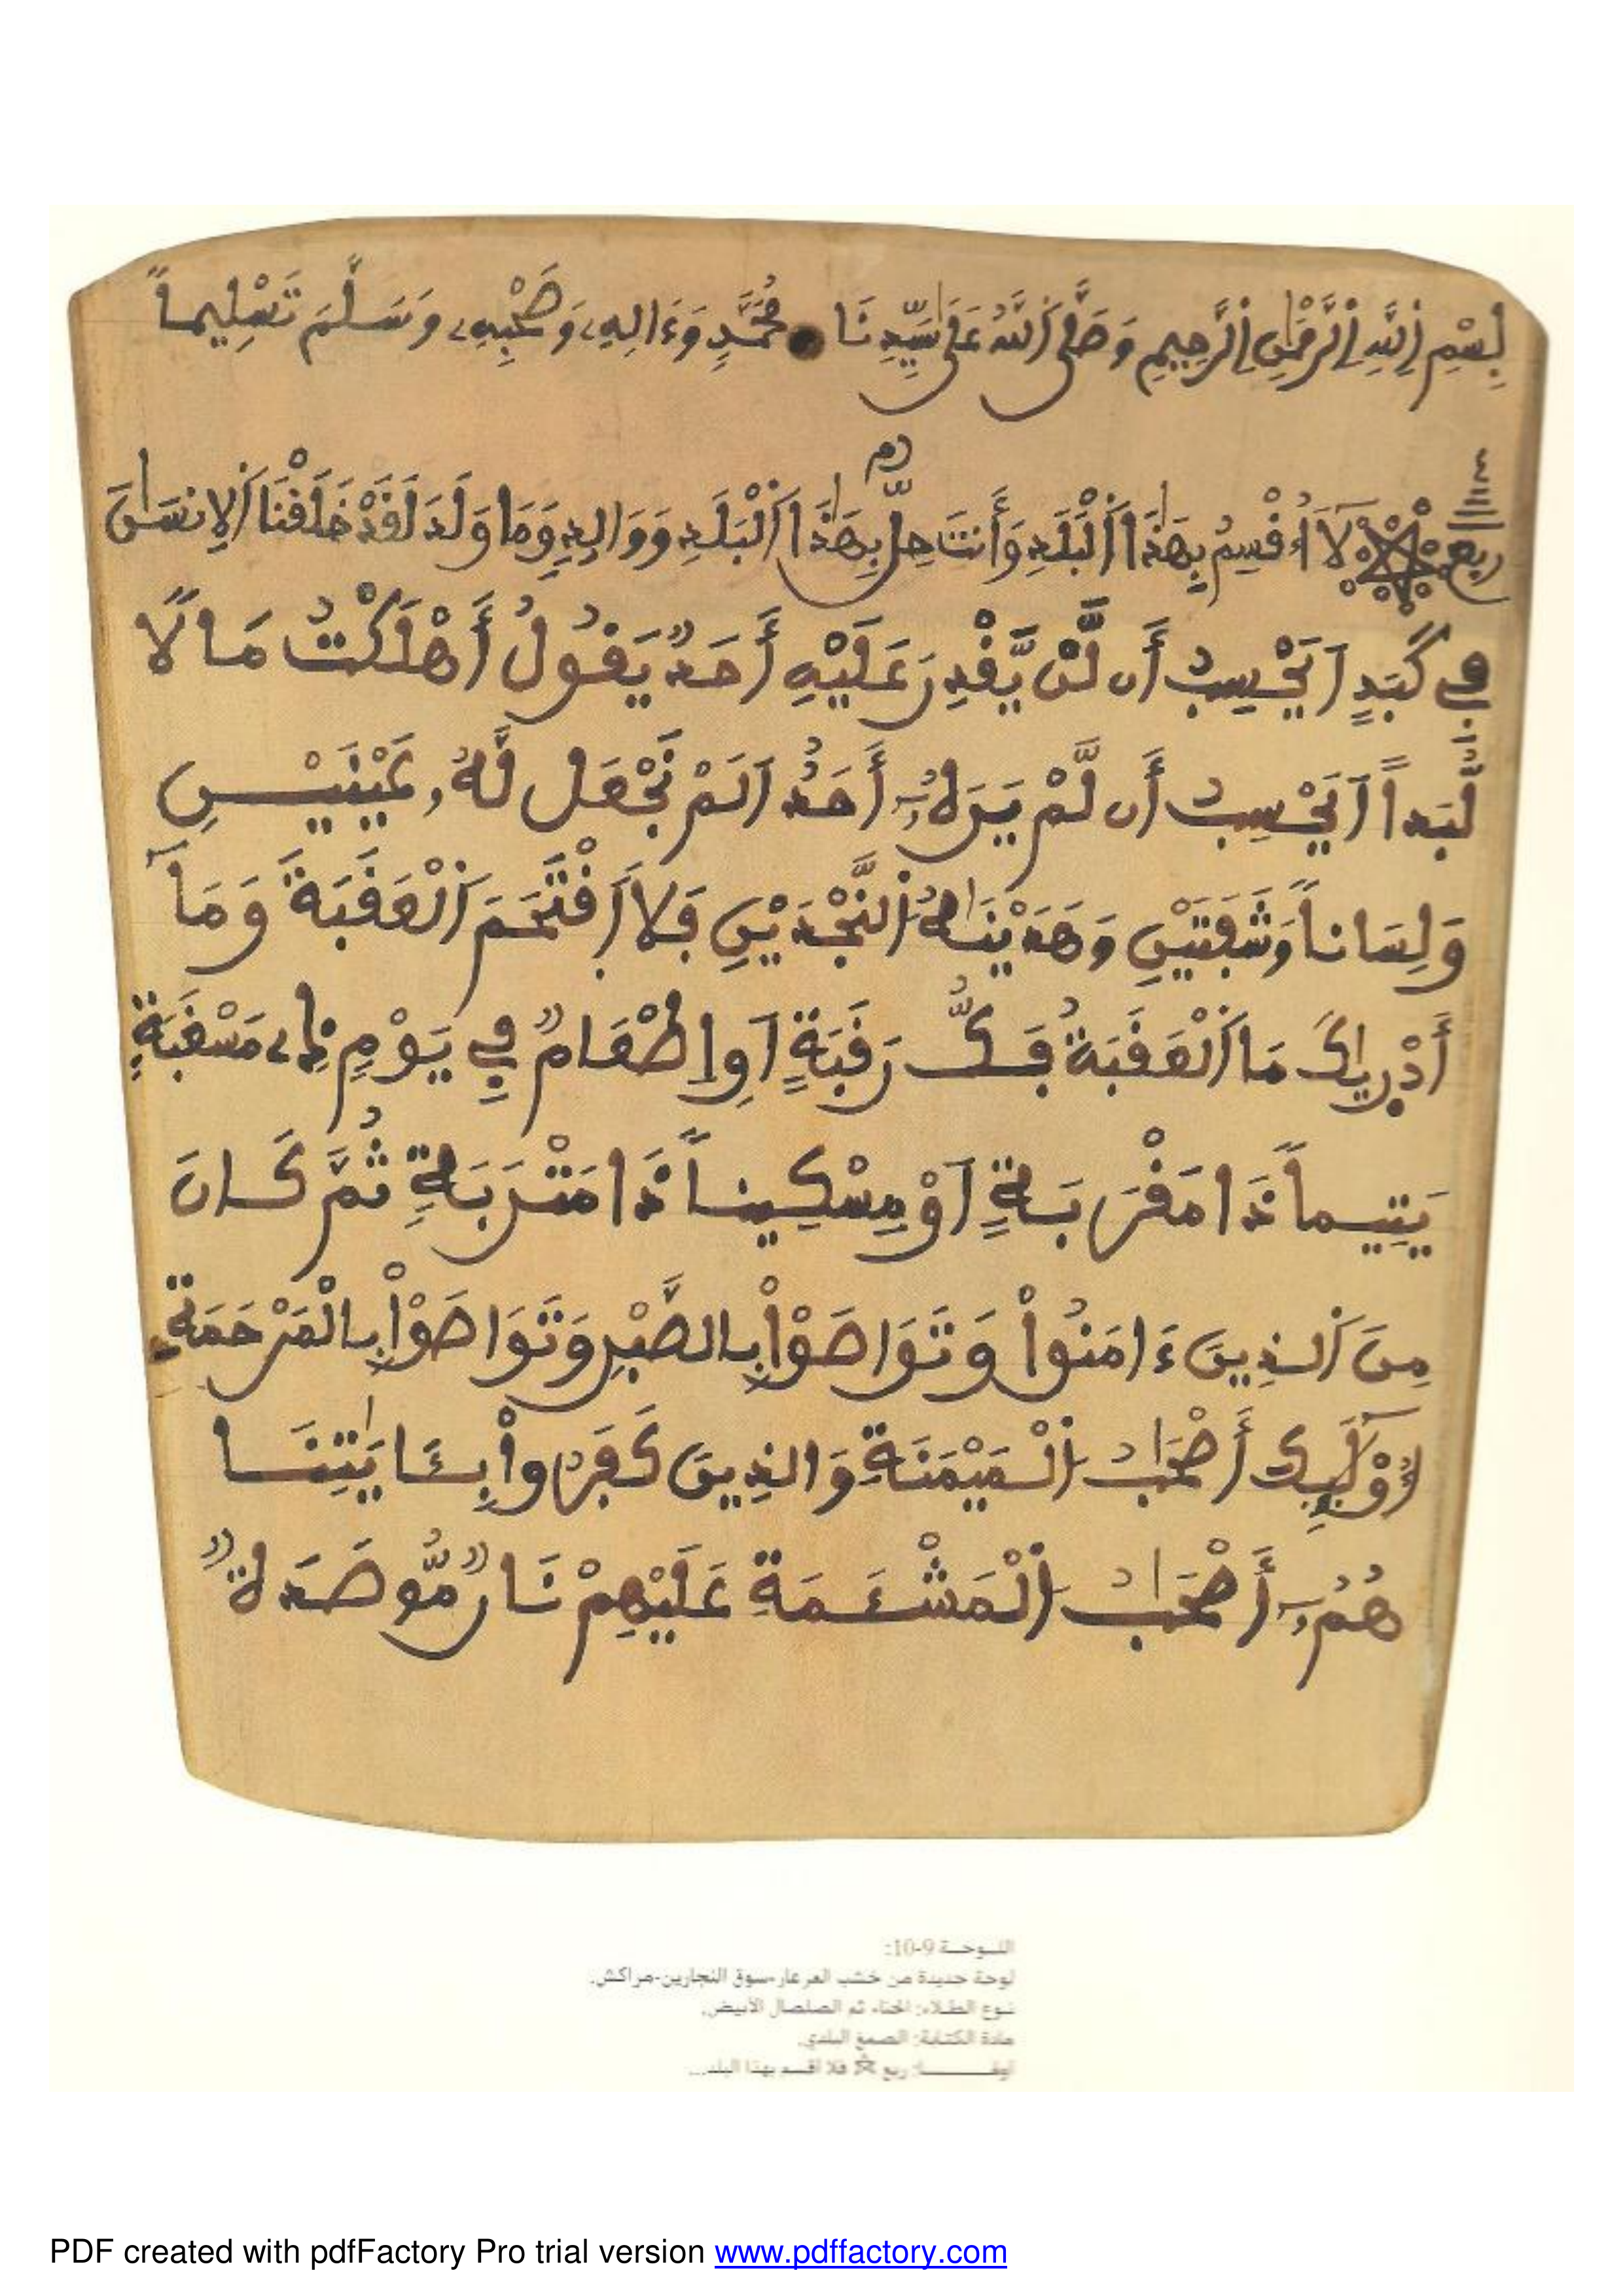 بِسْمِ اِ۬للَّهِ اِ۬لرَّحْمَٰنِ اِ۬لرَّحِيمِ وَصَلَّى اَ۬للَّهُ عَلَىٰ سَيِّدِنَا مُحَمَّدٍ وَءَالِهِۦ وَصَحْبِهِۦ وَسَلَّمَ تَسْلِيماً
ربع لَآ أُقْسِمُ بِهَٰذَا اَ۬لْبَلَدِ وَأَنتَ حِلُّۢ بِهَٰذَا اَ۬لْبَلَدِ وَوَالِدٍ وَمَا وَلَدَ لَقَدْ خَلَقْنَا اَ۬لِانسَٰنَ
فِے كَبَدٍ اَيَحْسِبُ أَن لَّنْ يَّقْدِرَ عَلَيْهِ أَحَدٌ يَقُولُ أَهْلَكْتُ مَالًا
لُّبَداً اَيَحْسِبُ أَن لَّمْ يَرَهُۥٓ أَحَدٌ اَلَمْ نَجْعَل لَّهُۥ عَيْنَيْنِ
وَلِسَاناً وَشَفَتَيْنِ وَهَدَيْنَٰهُ اُ۬لنَّجْدَيْنِ فَلَا اَ۪قْتَحَمَ اَ۬لْعَقَبَةَ وَمَآ
أَدْر۪ىٰكَ مَا اَ۬لْعَقَبَةُ فَكُّ رَقَبَةٍ اَوِ اِطْعَامٌ فِے يَوْمٍ ذِے مَسْغَبَةٍ
يَتِيماً ذَا مَقْرَبَةٍ اَوْ مِسْكِيناً ذَا مَتْرَبَةٍ ثُمَّ كَانَ
مِنَ اَ۬لذِينَ ءَامَنُواْ وَتَوَاصَوْاْ بِالصَّبْرِ وَتَوَاصَوْاْ بِالْمَرْحَمَةِ
أُوْلَٰٓئِكَ أَصْحَٰبُ اُ۬لْمَيْمَنَةِ وَالذِينَ كَفَرُواْ بِـَٔايَٰتِنَا
هُمُۥٓ أَصْحَٰبُ اُ۬لْمَشْـَٔمَةِ عَلَيْهِمْ نَارٌ مُّوصَدَةٌ
اللـوحـة 9-10:
لوحة جديدة من خشب العرعار-سوق النجارين-مراكش.
نـوع الطـلاء: الحناء ثم الصلصال الأبيض.
مادة الكتـابة: الصمغ البلدي.
ربع ☆ فلا أقسم بهذا البلد...
PDF created with pdfFactory Pro trial version www.pdffactory.com